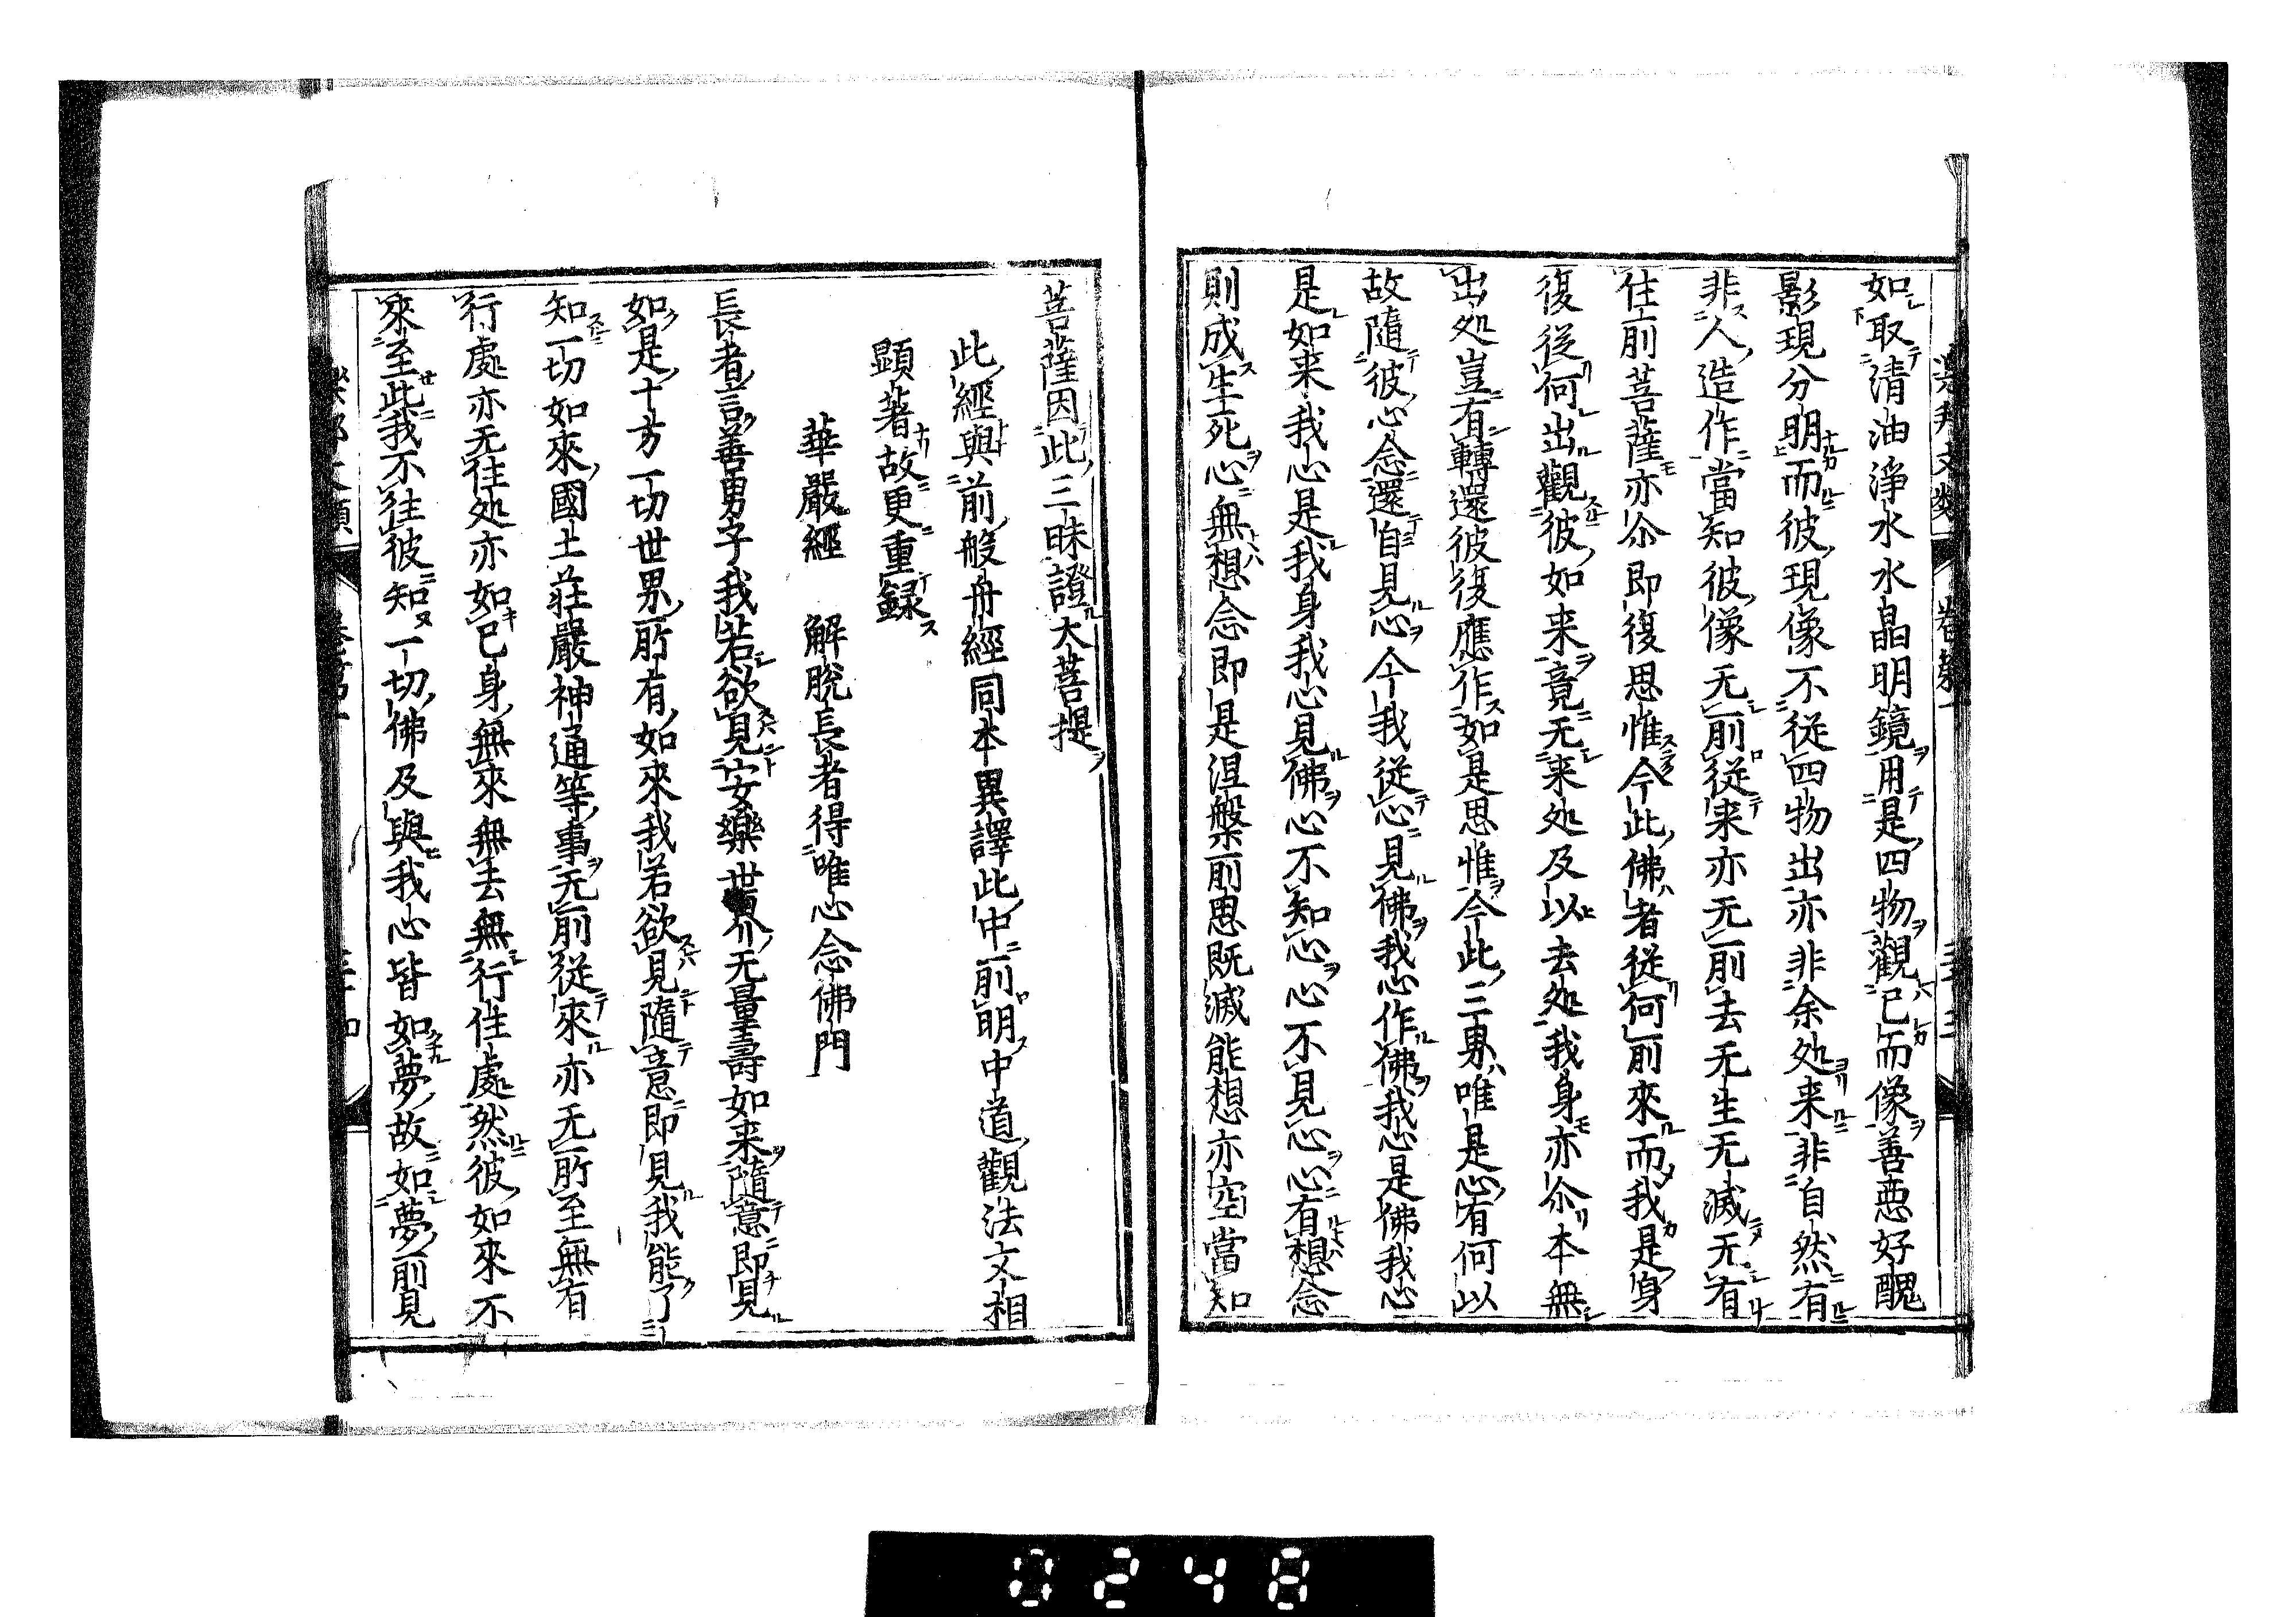 如取清油淨水水晶明鏡用是四物觀已而像善悪好醜
影現分明而彼現像不従四物出亦非余処来非自然有
非人造作當知彼像无前従来亦无前去无生无滅无有
住前菩薩亦尒即復思惟今此佛者従何前來而我是身
復従何出觀彼如来竟无来処及以去処我身亦尒本無
出処豈有轉還彼復應作如是思惟今此三界唯是心有何以
故隨彼心念還自見心今我従心見佛我心作佛我心是佛我心
是如来我心是我身我心見佛心不知心心不見心心有想念
則成生死心無想念即是涅槃前思既滅能想亦空當知
菩薩因此三昧證大菩提
此經與前般舟經同本異譯此中前明中道觀法文相
顕著故更重録
華嚴經　解脱長者得唯心念佛門
長者言善男子我若欲見安樂世界无量壽如来隨意即見
如是十方一切世界所有如來我若欲見隨意即見我能了
知一切如來國土荘嚴神通等事无前従來亦无所至無有
行處亦无住処亦如己身無來無去無行住處然彼如來不
來至此我不往彼知一切佛及與我心皆如夢故如夢前見